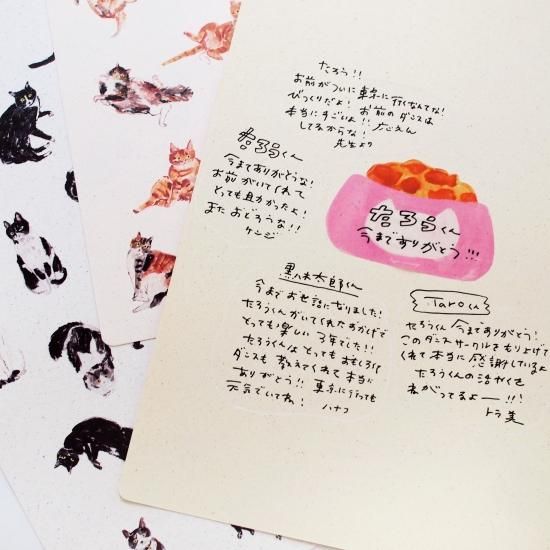 たろう!!
お前がついに東京に行くなんてな!
びっくりだよ! お前のダンスは
本当にすごいよ!! 応えん
してるからな!
先生より
たろうくん
今までありがとうな!
お前がいてくれて
とっても助かったよ!
またおどろうな!!
ケンジ
たろうくん
今までありがとう!!!
黒木太郎くん
今までお世話になりました!
たろうくんがいてくれたおかげで
とっても楽しい3年でした!!
たろうくんはとってもおもしろく
ダンスも教えてくれて本当に
ありがとう!! 東京に行っても
元気でいてね! ハナコ
Taroくん
たろうくん今までありがとう!
このダンスサークルをもり上げて
くれて本当に感謝しているよ
たろうくんの活やくを
ねがってるよー!!!
トラ美